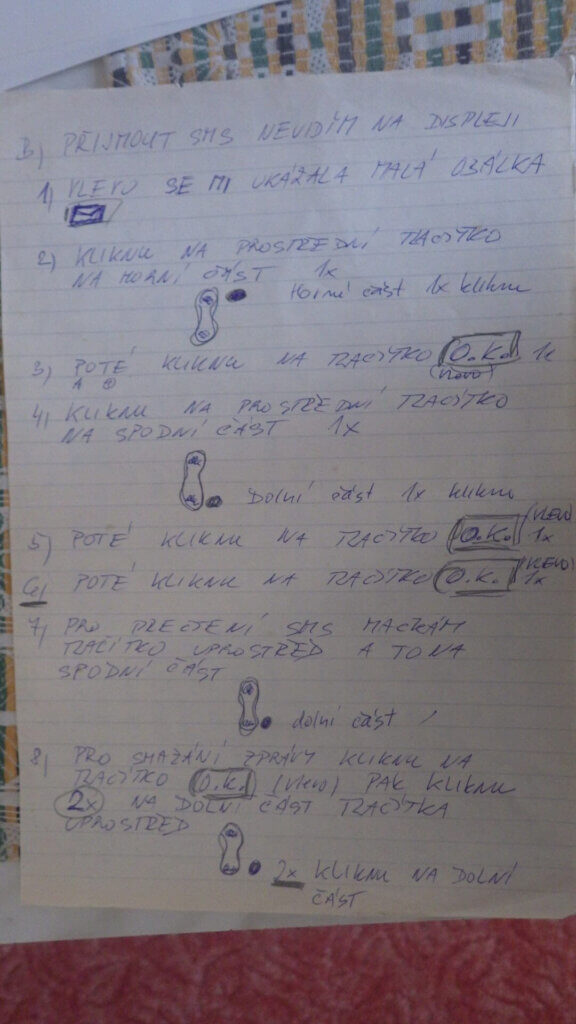 B) PŘIJMOUT SMS NEVIDÍM NA DISPLEJI
1) VLEVO SE MI UKÁZALA MALÁ OBÁLKA
2) KLIKNU NA PROSTŘEDNÍ TLAČÍTKO
NA HORNÍ ČÁST 1x
Horní část 1x kliknu
3) POTÉ KLIKNU NA TLAČÍTKO O.K. 1x
(vlevo)
4) KLIKNU NA PROSTŘEDNÍ TLAČÍTKO
NA SPODNÍ ČÁST 1x
Dolní část 1x kliknu
5) POTÉ KLIKNU NA TLAČÍTKO O.K. (VLEVO) 1x
6) POTÉ KLIKNU NA TLAČÍTKO O.K. (VLEVO) 1x
7) PRO PŘEČTENÍ SMS MAČKÁM
TLAČÍTKO UPROSTŘED A TO NA
SPODNÍ ČÁST
dolní část
8) PRO SMAZÁNÍ ZPRÁVY KLIKNU NA
TLAČÍTKO O.K. (vlevo) PAK KLIKNU
2x NA DOLNÍ ČÁST TLAČÍTKA
UPROSTŘED
2x KLIKNU NA DOLNÍ
ČÁST